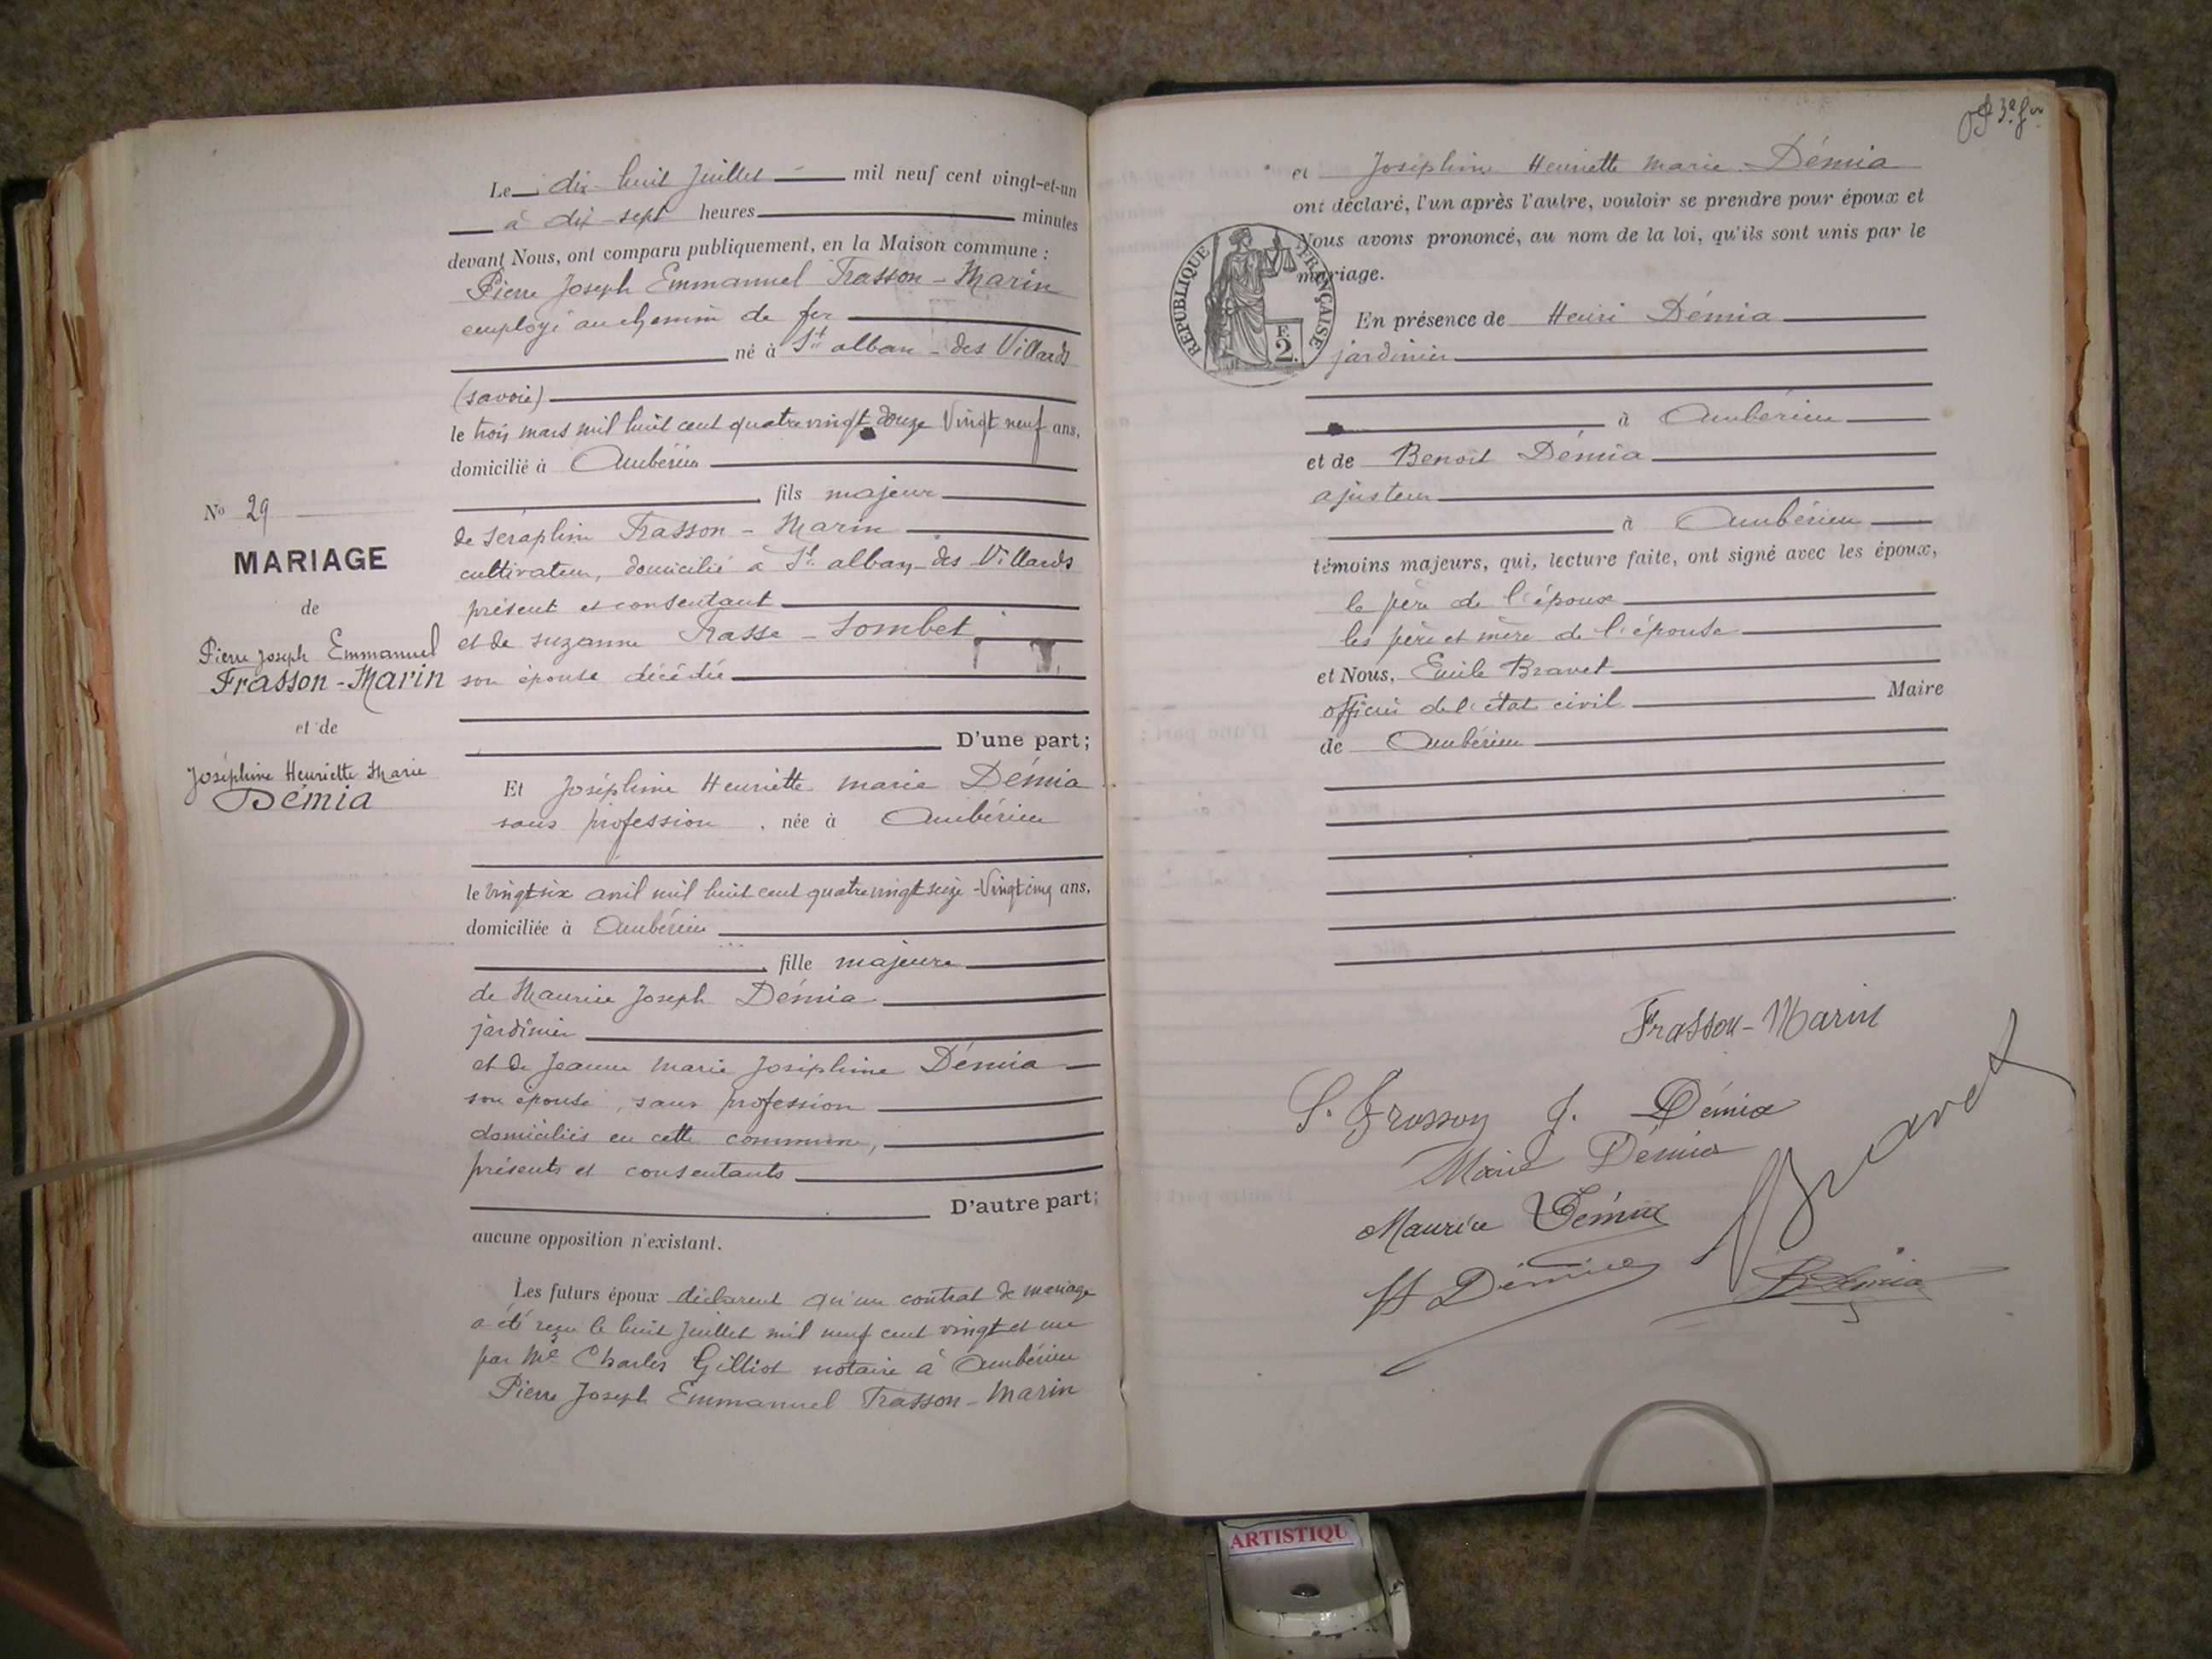 Le dix-huit Juillet mil neuf cent vingt-et-un
à dix-sept heures minutes
devant Nous, ont comparu publiquement, en la Maison commune :
Pierre Joseph Emmanuel Frasson-Marin
employé au chemin de fer
né à St alban-des Villards
(savoie)
le trois mars mil huit cent quatre vingt douze Vingt neuf ans,
domicilié à Ambérieu
fils majeur
de Séraphin Frasson-Marin
cultivateur, domicilié à St alban-des Villards
présent et consentant
et de suzanne Frasse-Sombet
son épouse décédée
D'une part;
No 29
MARIAGE
de
Pierre Joseph Emmanuel
Frasson-Marin
et de
Joséphine Henriette Marie
Démia
Et Joséphine Henriette marie Démia
sans profession, née à Ambérieu
le vingt six avril mil huit cent quatre vingt seize - Vingt cinq ans,
domiciliée à Ambérieu
fille majeure
de Maurice Joseph Démia
jardinier
et de Jeanne Marie Joséphine Démia
son épouse, sans profession
domiciliés en cette commune,
présents et consentants
D'autre part;
aucune opposition n'existant.
Les futurs époux déclarent qu'un contrat de mariage
a été reçu le huit Juillet mil neuf cent vingt et un
par Me Charles Gilliot notaire à Ambérieu
Pierre Joseph Emmanuel Frasson-Marin
et Joséphine Henriette Marie Démia
ont déclaré, l'un après l'autre, vouloir se prendre pour époux et
Nous avons prononcé, au nom de la loi, qu'ils sont unis par le
mariage.
RÉPUBLIQUE FRANÇAISE
F. 2.
En présence de Henri Démia
jardinier
à Ambérieu
et de Benoit Démia
ajusteur
à Ambérieu
témoins majeurs, qui, lecture faite, ont signé avec les époux,
le père de l'époux
les père et mère de l'épouse
et Nous, Emile Bravet
officier de l'état civil Maire
de Ambérieu
Frasson-Marin
S. Frasson J. Démia
Marie Démia
Bravet
Maurice Démia
H Démia
B Démia
ARTISTIQU